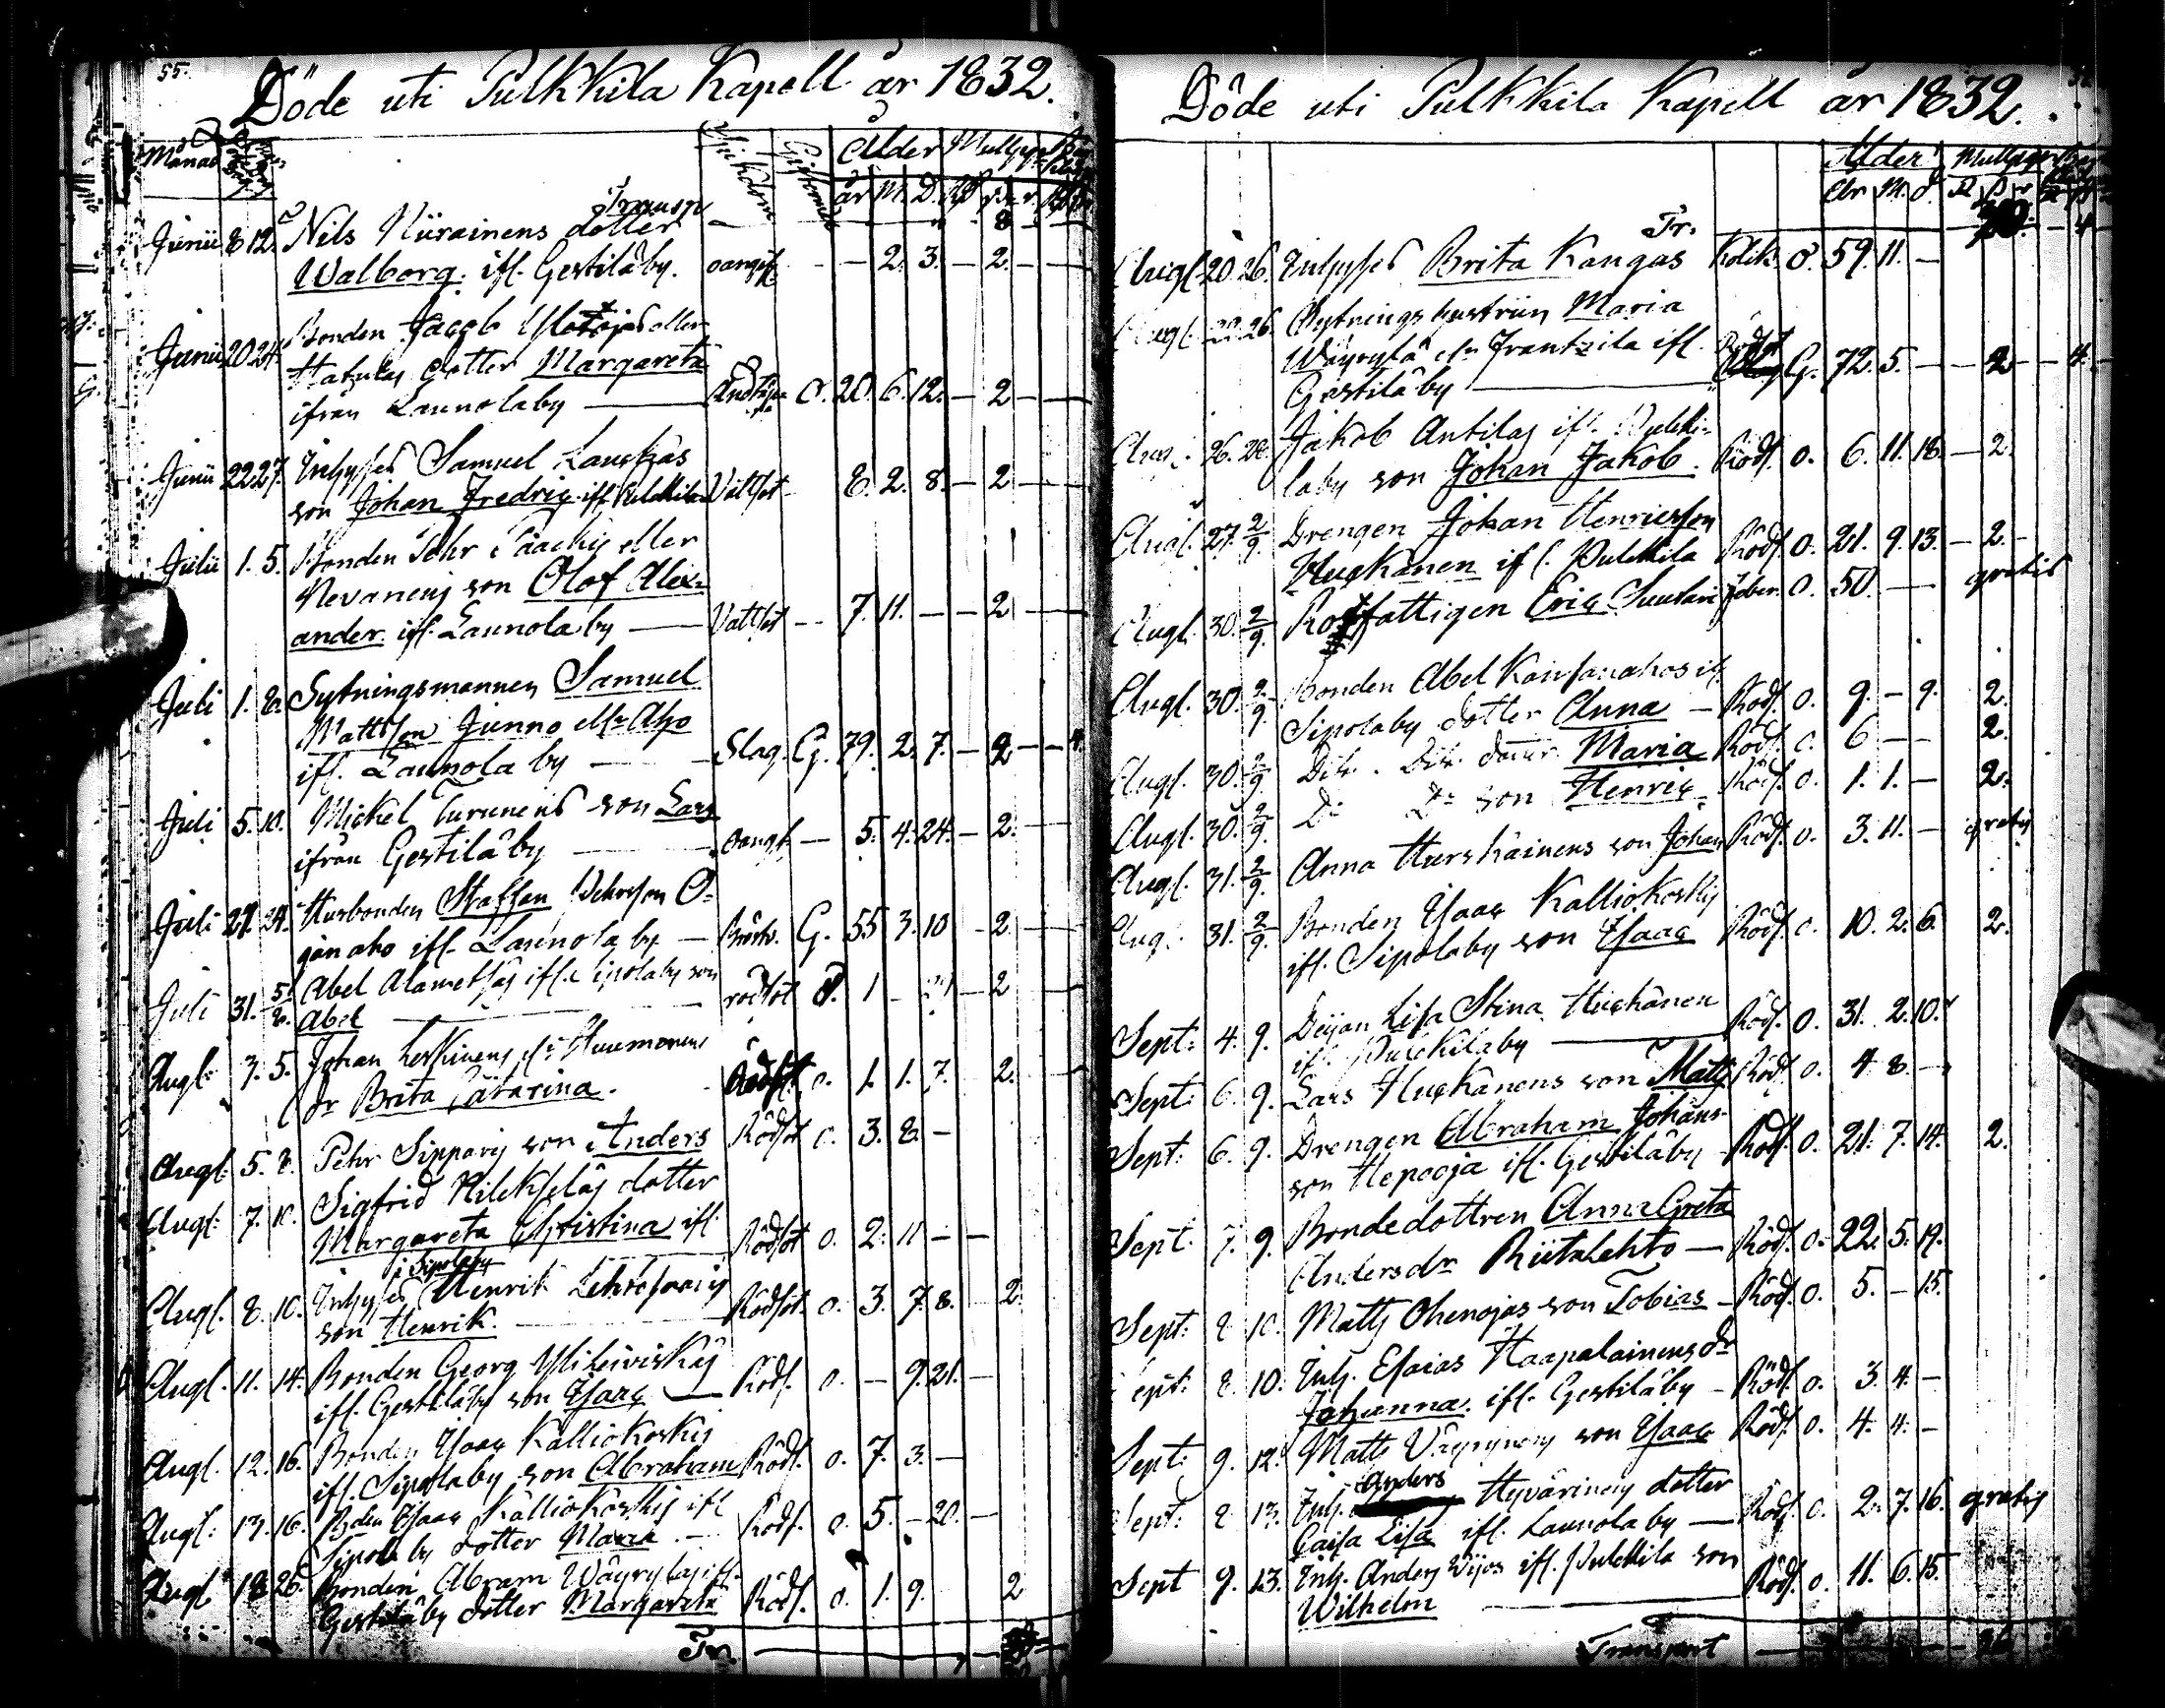 55.
Döde uti Pulkkila Kapell år 1832.
Månad Sjukdom Ålder
år M. D.
Transp
Junii 8 12. Nils Niirainens dotter — 8
Walborg. ifl. Gestilåby. oangifl — — 2. 3. — 2. — —
Junii 20 24. Bonden Jacob eller
dotter Margareta
ifrån Launolaby — O. 20. 6. 12. — 2 — —
Junii 22 27. Inhyses Samuel Lauskas
son Johan Fredric ifl. Pulkkila Vattsot — 8. 2. 8. — 2 — —
Julii 1. 5. Bonden Pehr Paackis eller
Nevanens son Olof Alex-
ander. ifl. Launolaby — Vattsot — 7. 11. — — 2 —
Juli 1. 8. Sytningsmannen Samuel
Mattsson Junno Aho
ifl. Launola by — Slag. G. 79. 2. 7. — 2 — — 4.
Juli 5. 10. Mickel Turunens son Lars
ifrån Gestilåby — oangf. — 5. 4. 24. — 2. —
Juli 21. 24. Husbonden Staffan Pehrsson O-
janaho ifl. Launola by — G. 55 3. 10 — 2. —
Juli 31. 5/8. Abel Alametsäs ifl. Sipolaby son rödsot O. 1 — — 2
Abel
Augl: 3. 5. Johan Leskinens
dr Brita Catarina. Rödsot. o. 1. 1. 7. 2.
Augl: 5. 8. Pehr Sipparis son Anders Rödsot o. 3. 8. —
Augl: 7. 10. Sigfrid dotter
Margareta Christina ifl. Rödsot o. 2. 11 — —
Sipolaby
Augl. 8. 10. Inhyses Henrik
son Henrik. Rödsot. o. 3. 7. 8. — 2
Augl. 11. 14. Bonden Georg
ifl. Gestilåby son Isaac — Rödf. o. — 9. 21. —
Augl. 12. 16. Bonden Isaac Kalliokoskis
ifl. Sipolaby son Abraham Rödf. o. 7. 3. —
Augl: 13. 16. Bden Isaac Kalliokoskis ifl
Sipola by dotter Maria — Rödf. o. 5. — 20. —
Augl. 18. 26. Bonden Abram Wäyryläs ifl.
Gestilåby dotter Margareta Rödf. o. 1. 9. 2
Tr.
Döde uti Pulkkila Kapell år 1832.
Ålder
År M. d.
Tr. — 4
Augl. 20. 26. Inhyses Brita Kangas Kolik. o. 59. 11. —
Augl. 22. 26. Sytningshustrun Maria
Wäyrylä Frantzila ifl. Rödsot
Gestilåby — G. 72. 5. — — 2 — — 4.
Aug. 26. 28. Jakob Antilas ifl. Pulkki-
laby son Johan Jakob. Rödf. o. 6. 11. 18. — 2.
Augl. 27. 2/9. Drengen Johan Henricsson
Huckanen ifl. Pulkkila Rödf. o. 21. 9. 13. — 2. —
Augl. 30. 2/9. Rotfattigen Eric Suutari o. 50. — — gratis
Augl. 30. 2/9. Bonden Abel Kansanahos ifl.
Sipolaby dotter Anna — Rödf. o. 9. — 9. 2.
Augl. 30. 2/9. Dito. Dito. dotter Maria Rödf. o. 6 — — 2.
Augl. 30. 2/9. Do Do son Henric Rödf. o. 1. 1. — 2.
Augl. 31. 2/9. Anna Hurskainens son Johan Rödf. o. 3. 11. — gratis
Aug. 31. 2/9. Bonden Isaac Kalliokoskis
ifl. Sipolaby son Isaac Rödf. o. 10. 2. 6. 2.
Sept: 4. 9. Pigan Lisa Stina Huckanen
ifl. Pulckilaby — Rödf. o. 31. 2. 10.
Sept: 6. 9. Lars Huckanens son Matts Rödf. o. 4. 8. —
Sept: 6. 9. Drengen Abraham Johans-
son Hepooja ifl. Gestilåby — Rödf. o. 21. 7. 14. 2.
Sept: 7. 9. Bondedottren Anna Greta
Andersdr Riitalehto — Rödf. o. 22. 5. 19.
Sept: 8 10. Matts Ohenojas son Tobias — Rödf. o. 5. — 15.
Sept: 8. 10. Inh. Esaias Haapalainens dr
Johanna. ifl. Gestilåby — Rödf. o. 3. 4. —
Sept: 9. 12. Matts Väyrynens son Isaac Rödf. o. 4. 4. —
Anders
Sept: 8 13. Inh. Hyvärinens dotter
Caisa Lisa ifl. Launolaby — Rödf. o. 2. 7. 16. gratis
Sept 9. 13. Inh. Anders ifl. Pulckila son
Wilhelm — Rödf. o. 11. 6. 15.
Transport